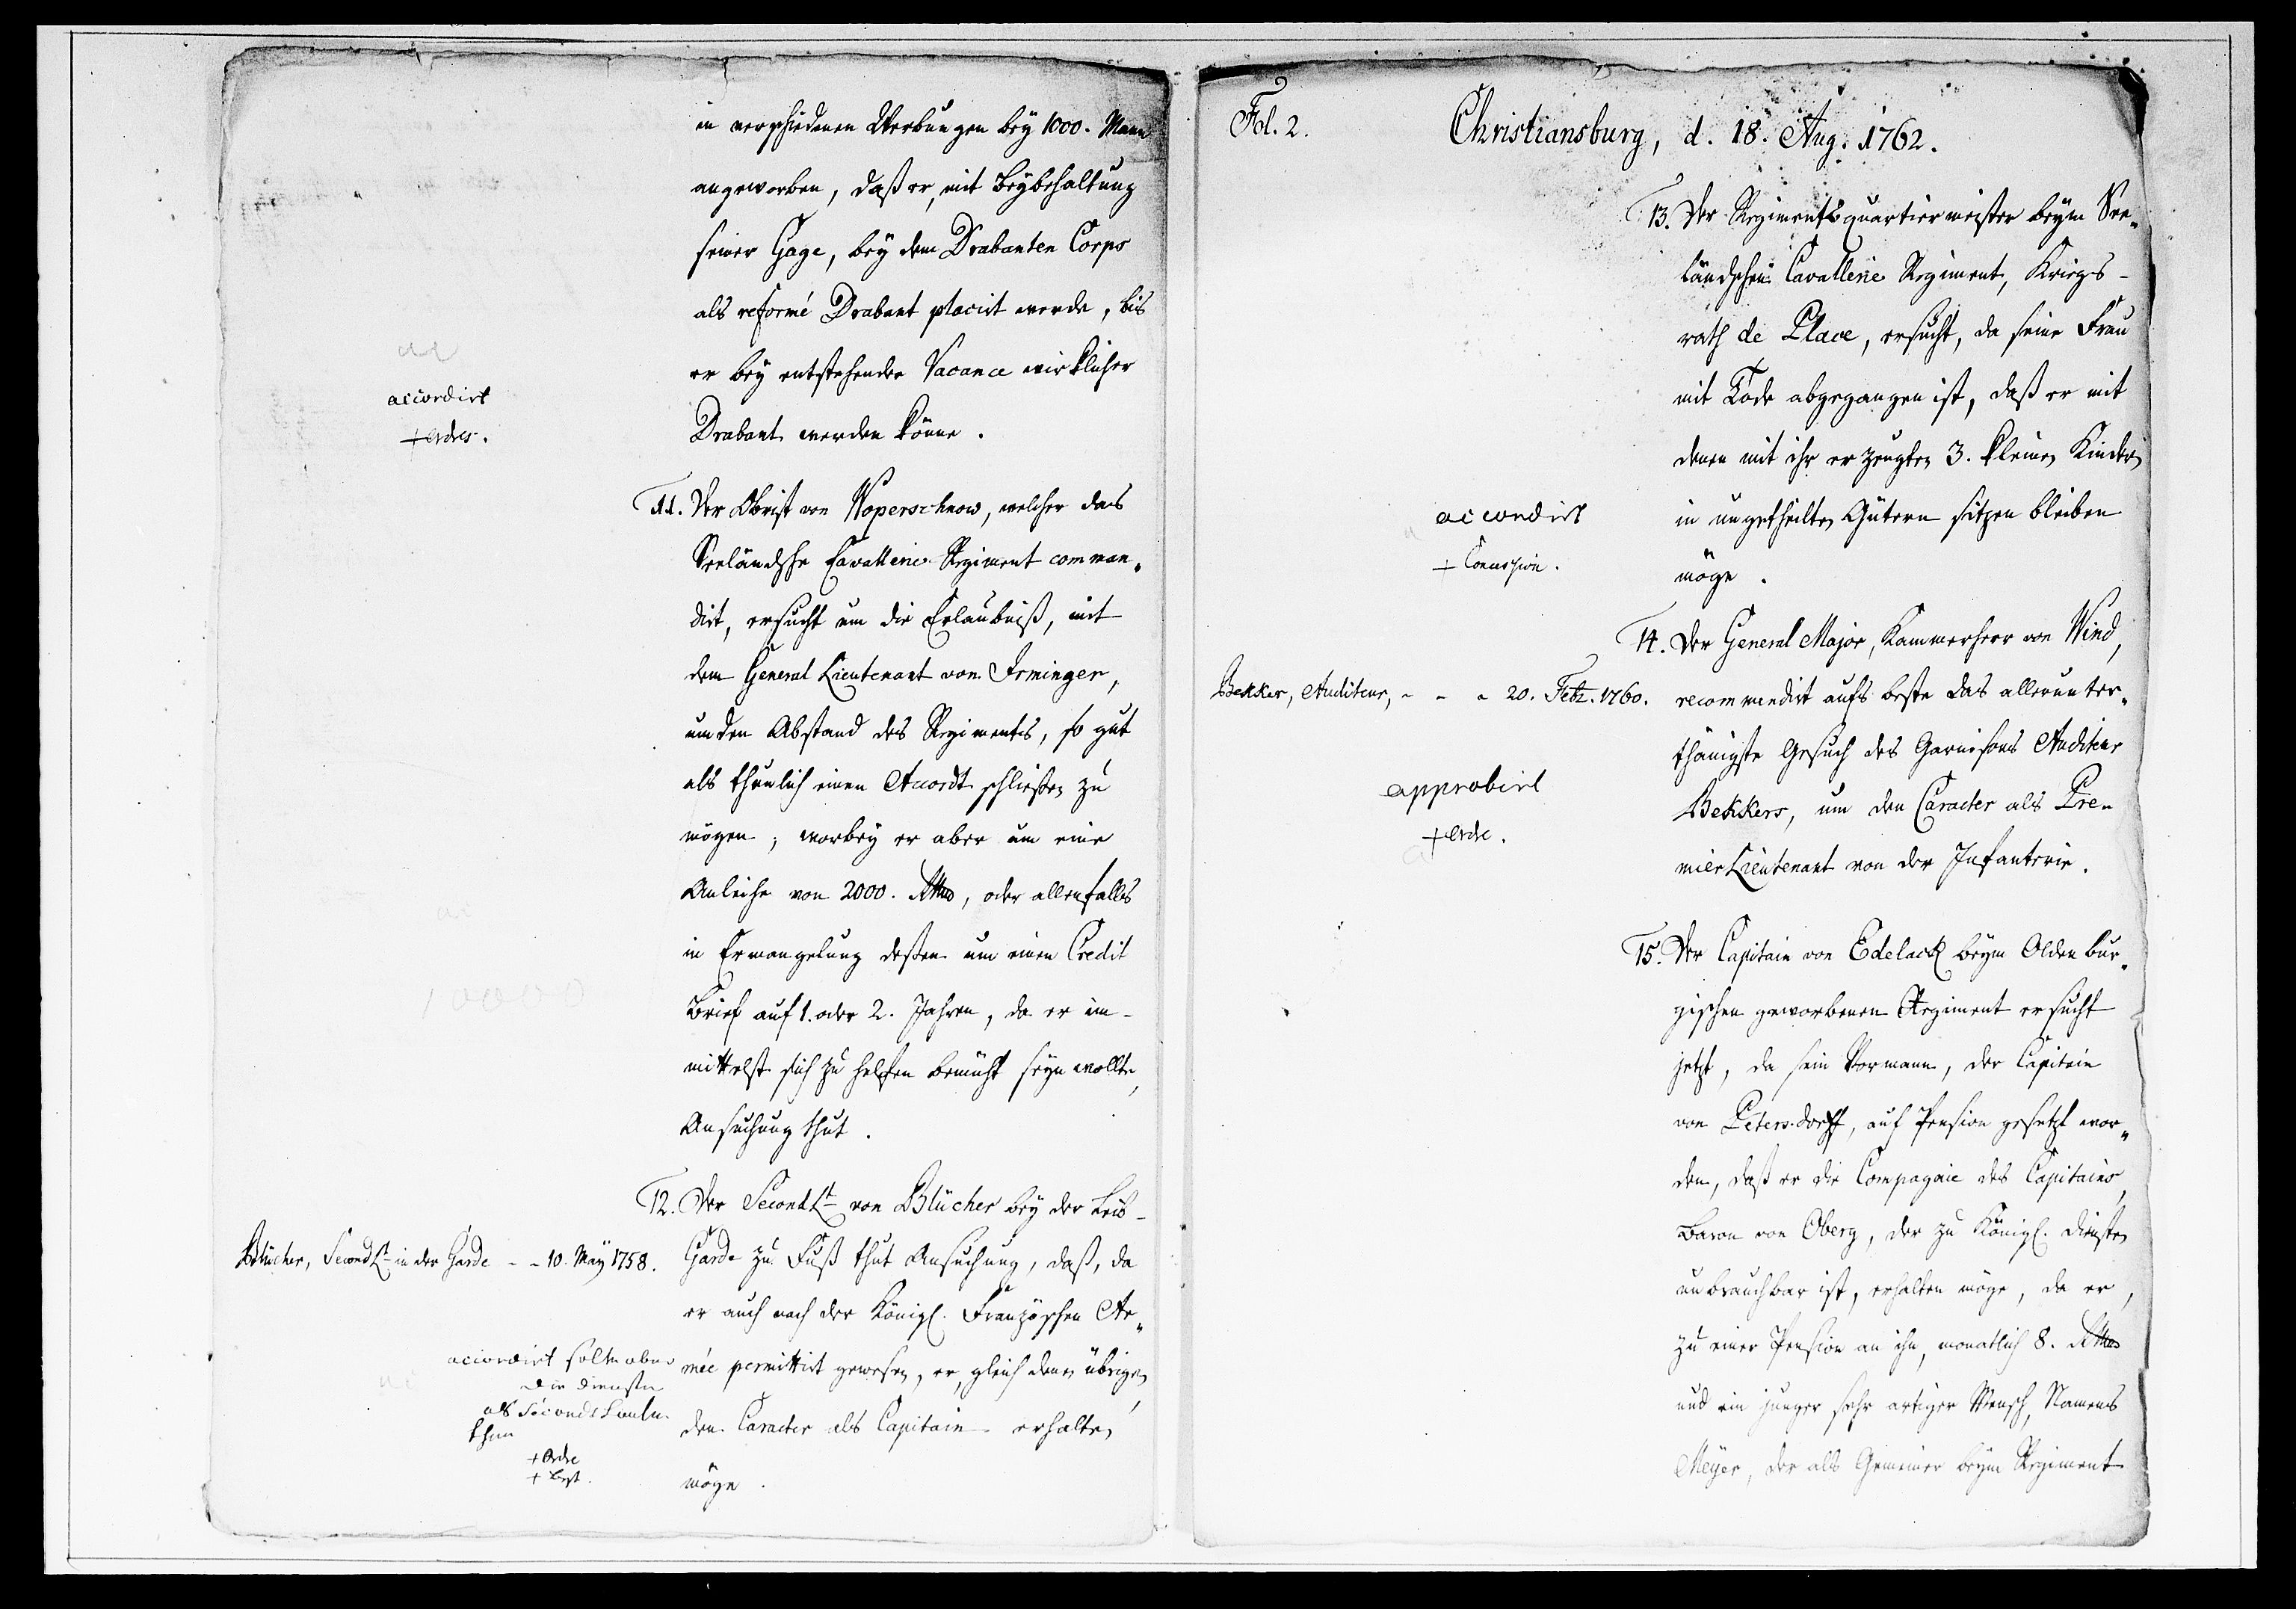 in verschiedenen Werbungen bey 1000. Mann
angeworben, daß er, mit Beybehaltung
seiner Gage, bey dem Drabanten Corps
als reformé Drabant placirt werde, bis
er bey entstehender Vacance wirklicher
accordirt
Drabant werden könne.
+ ordres.
11. Der Obrist von Woperschnow, welcher das
Seeländsche Cavallerie Regiment comman„
dirt, ersucht um die Erlaubniß, mit
dem General Lieutenant von Irminger,
um den Abstand des Regiments, so gut
als thunlich einen Accordt schließen zu
mögen; worbey er aber um eine
Anleihe von 2000. Rthlr, oder allenfalls
in Ermangelung deßen um einen Credit
Brief auf 1. oder 2. Jahren, da er im-
mittelst sich zu helfen bemüht seyn wollte,
Ansuchung thut.
12. Der Second Lt von Blücher bey der Leib-
Blücher, Second Lt in der Garde - - 10. May 1758.
Garde zu Fuß thut Ansuchung, daß, da
er auch nach der Königl. Französchen Ar„
accordirt solte aber
mée permittirt gewesen, er, gleich denen übrigen,
die Dienste
als Second Leutn.
den Caracter als Capitain erhalten
thun
+ Ordre
+ Best.
möge.
Fol. 2.
Christiansburg, d. 18. Aug. 1762.
13. Der Regimentsquartiermeister beym See„
ländschen Cavallerie Regiment, Kriegs-
rath de Place, ersucht, da seine Frau
mit Tode abgegangen ist, daß er mit
denen mit ihr erzeugten 3. kleinen Kindern
accordirt
in ungetheilten Gütern sitzen bleiben
+ Concession.
möge.
14. Der General Major, Kammerherr von Wind,
Bekker, Auditeur, - - - 20. Febr. 1760.
recommendirt aufs beste das allerunter„
thänigste Gesuch des Garnisons Auditeur
approbirt
Bekkers, um den Caracter als Pre„
+ ordre.
mier Lieutenant von der Infanterie.
15. Der Capitain von Edelack beym Oldenbur„
gischen geworbenen Regiment ersucht
jetzt, da sein Vormann, der Capitain
von Petersdorff, auf Pension gesetzt wor„
den, daß er die Compagnie des Capitains,
Baron von Oberg, der zu Königl. Diensten
unbrauchbar ist, erhalten möge, da er,
zu einer Pension an ihn, monatlich 8. Rthlr
und ein junger sehr artiger Mensch, Namens
Meyer, der als Gemeiner beym Regiment